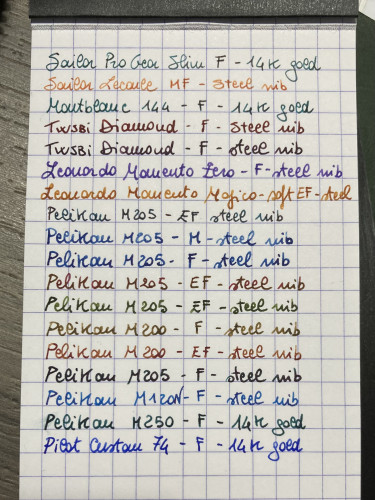 Sailor Pro Gear Slim F - 14K gold
Sailor Lecoule MF - Steel nib
Montblanc 144 - F - 14K gold
TWSBI Diamond - F - steel nib
TWSBI Diamond - F - steel nib
Leonardo Momento Zero - F - steel nib
Leonardo Momento Magico - soft EF - steel
Pelikan M205 - EF steel nib
Pelikan M205 - M - steel nib
Pelikan M205 - F - steel nib
Pelikan M205 - EF - steel nib
Pelikan M205 - EF - steel nib
Pelikan M200 - F - steel nib
Pelikan M200 - EF - steel nib
Pelikan M205 - F - steel nib
Pelikan M120N - F - steel nib
Pelikan M250 - F - 14K gold
Pilot Custom 74 - F - 14K gold